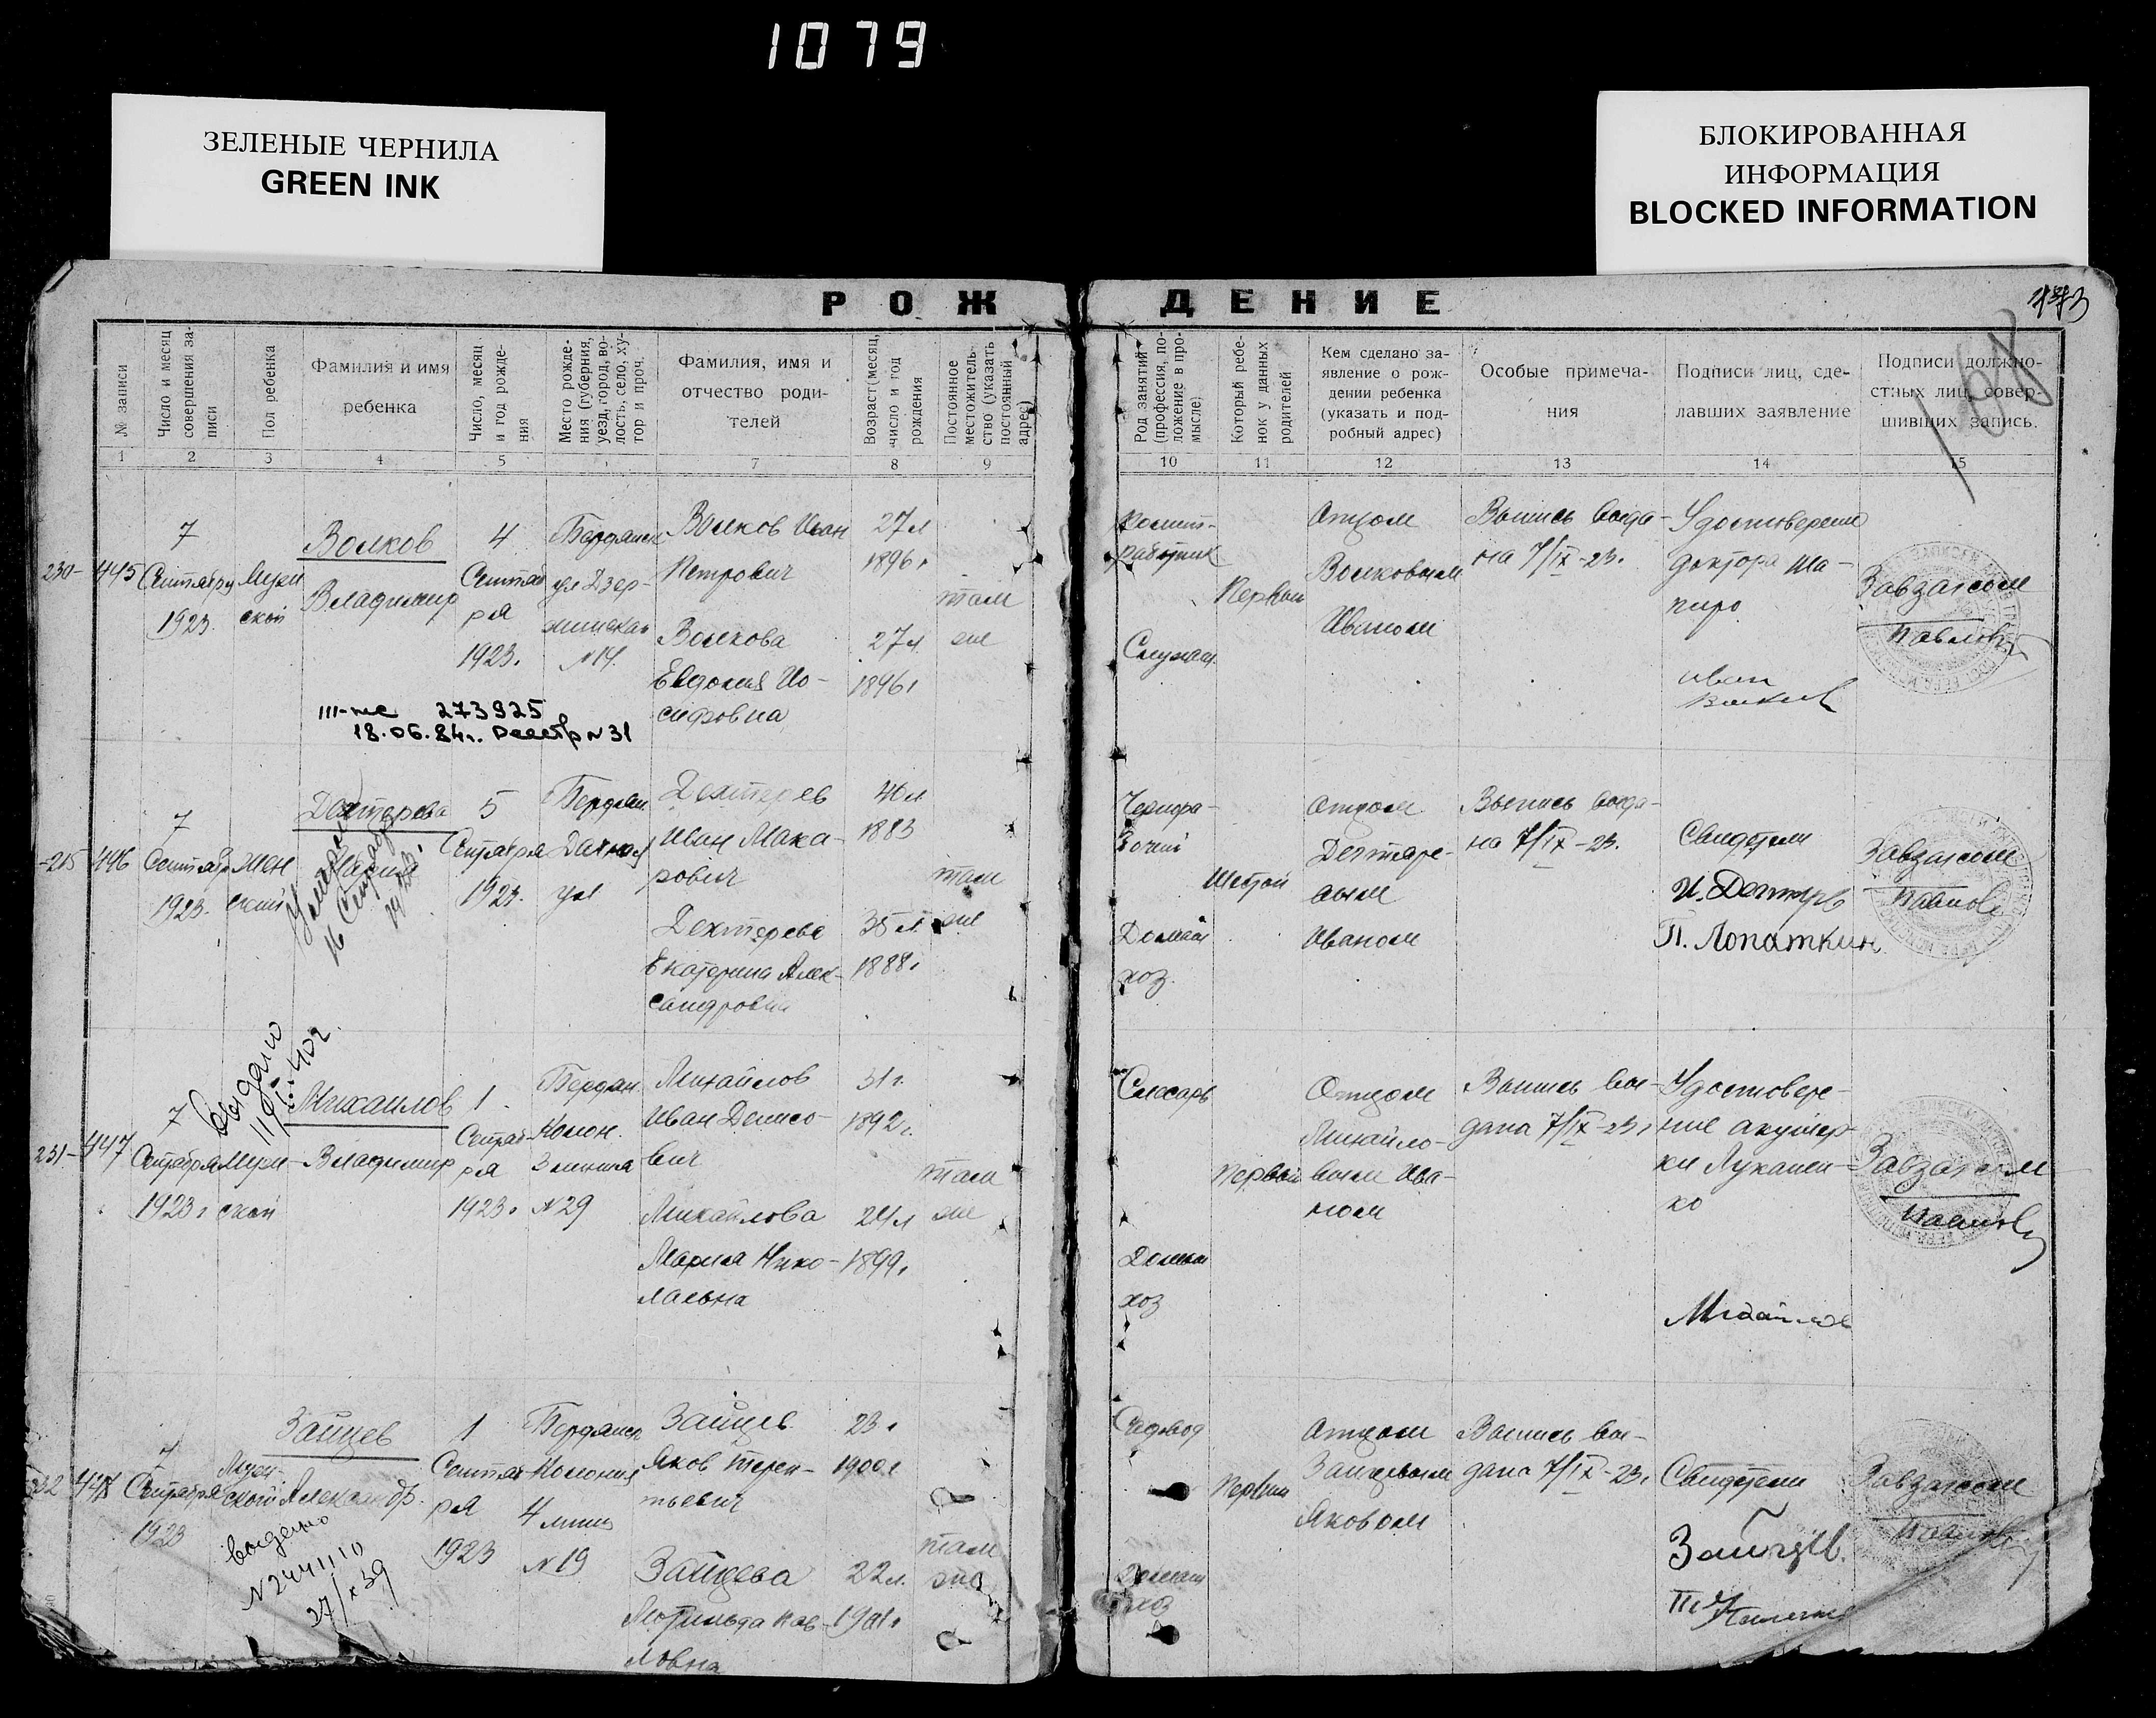 1079
ЗЕЛЕНЫЕ ЧЕРНИЛА
GREEN INK
БЛОКИРОВАННАЯ
ИНФОРМАЦИЯ
BLOCKED INFORMATION
РОЖДЕНИЕ
№ записи
Число и месяц
совершения за-
писи
Пол ребенка
Фамилия и имя
ребенка
Число, месяц
и год рожде-
ния
Место рожде-
ния (губерния,
уезд, город, во-
лость, село, ху-
тор и проч.
Фамилия, имя и
отчество роди-
телей
Возраст (месяц,
число и год
рождения
Постоянное
местожитель-
ство (указать
постоянный
адрес)
Род занятий
(профессия, по-
ложение в про-
мысле)
Который ребе-
нок у данных
родителей
Кем сделано за-
явление о рож-
дении ребенка
(указать и под-
робный адрес)
Особые примеча-
ния
Подписи лиц, сде-
лавших заявление
Подписи должно-
стных лиц, совер-
шивших запись.
1 2 3 4 5 7 8 9 10 11 12 13 14 15
230- 445
7
Сентября
1923.
Муж
ской
Волков
Владимир
4
Сентяб
ря
1923.
Бердянск
ул Дзер-
жинская
N14.
Волков Иван
Петрович
Волкова
Евдокия Ио-
сифовна
27 л
1896г
27 л.
1896г
там
же
работник
Служащ.
Первый
Отцом
Волковым
Иваном
Выпись выда-
на 7/IX-23.
Удостоверение
доктора Ша-
пиро
Иван
Волков
Завзагсом
273925
18.06.84г. Реестр N 31
-215 446
7
Сентябр
1923.
жен
ский
Дехтерева
Умерла
16 Сентября
1923г.
5
Сентября
1923.
Бердян
Дачная
ул
Дехтерев
Иван Мака-
рович
Дехтерева
Екатерина Алек-
сандровна
40 л
1883
35 л
1888г
там
же
Домаш
хоз.
Шестой
Отцом
Дехтере-
вым
Иваном
Выпись выда-
на 7/IX-23.
Свидетели
И. Дехтерев
П. Лопаткин
Завзагсом
выдано
231- 447
7
Сентября
1923г
Муж-
ской
Михайлов
Владимир
1
Сентяб-
ря
1923.
Бердян
Колон.
3 линия
N29
Михайлов
Иван Денисо-
вич
Михайлова
Мария Нико-
лаевна
31 г.
1892г.
24 л
1899г
там
же
Слесарь
Домаш
хоз
Первый
Отцом
Михайло-
вым Ива-
ном
Выпись вы-
дана 7/IX-23г
Удостовере-
ние акушер-
ки Лукашен-
ко
Михайлов
Завзагсом
232 448
7
Сентября
1923
Муж-
ской
Зайцев
Александр.
выдано
27/X 39
1
Сентяб
ря
1923
Бердянск
Колония
4 линия
N19
Зайцев
Яков Терен-
тьевич
Зайцева
Матильда Пав-
ловна
23г
1900г
22 л.
1901г
там
же
Садовод
Домаш
хоз
Первый
Отцом
Зайцевым
Яковом
Выпись вы-
дана 7/IX-23г
Свидетели
Зайцев.
Завзагсом